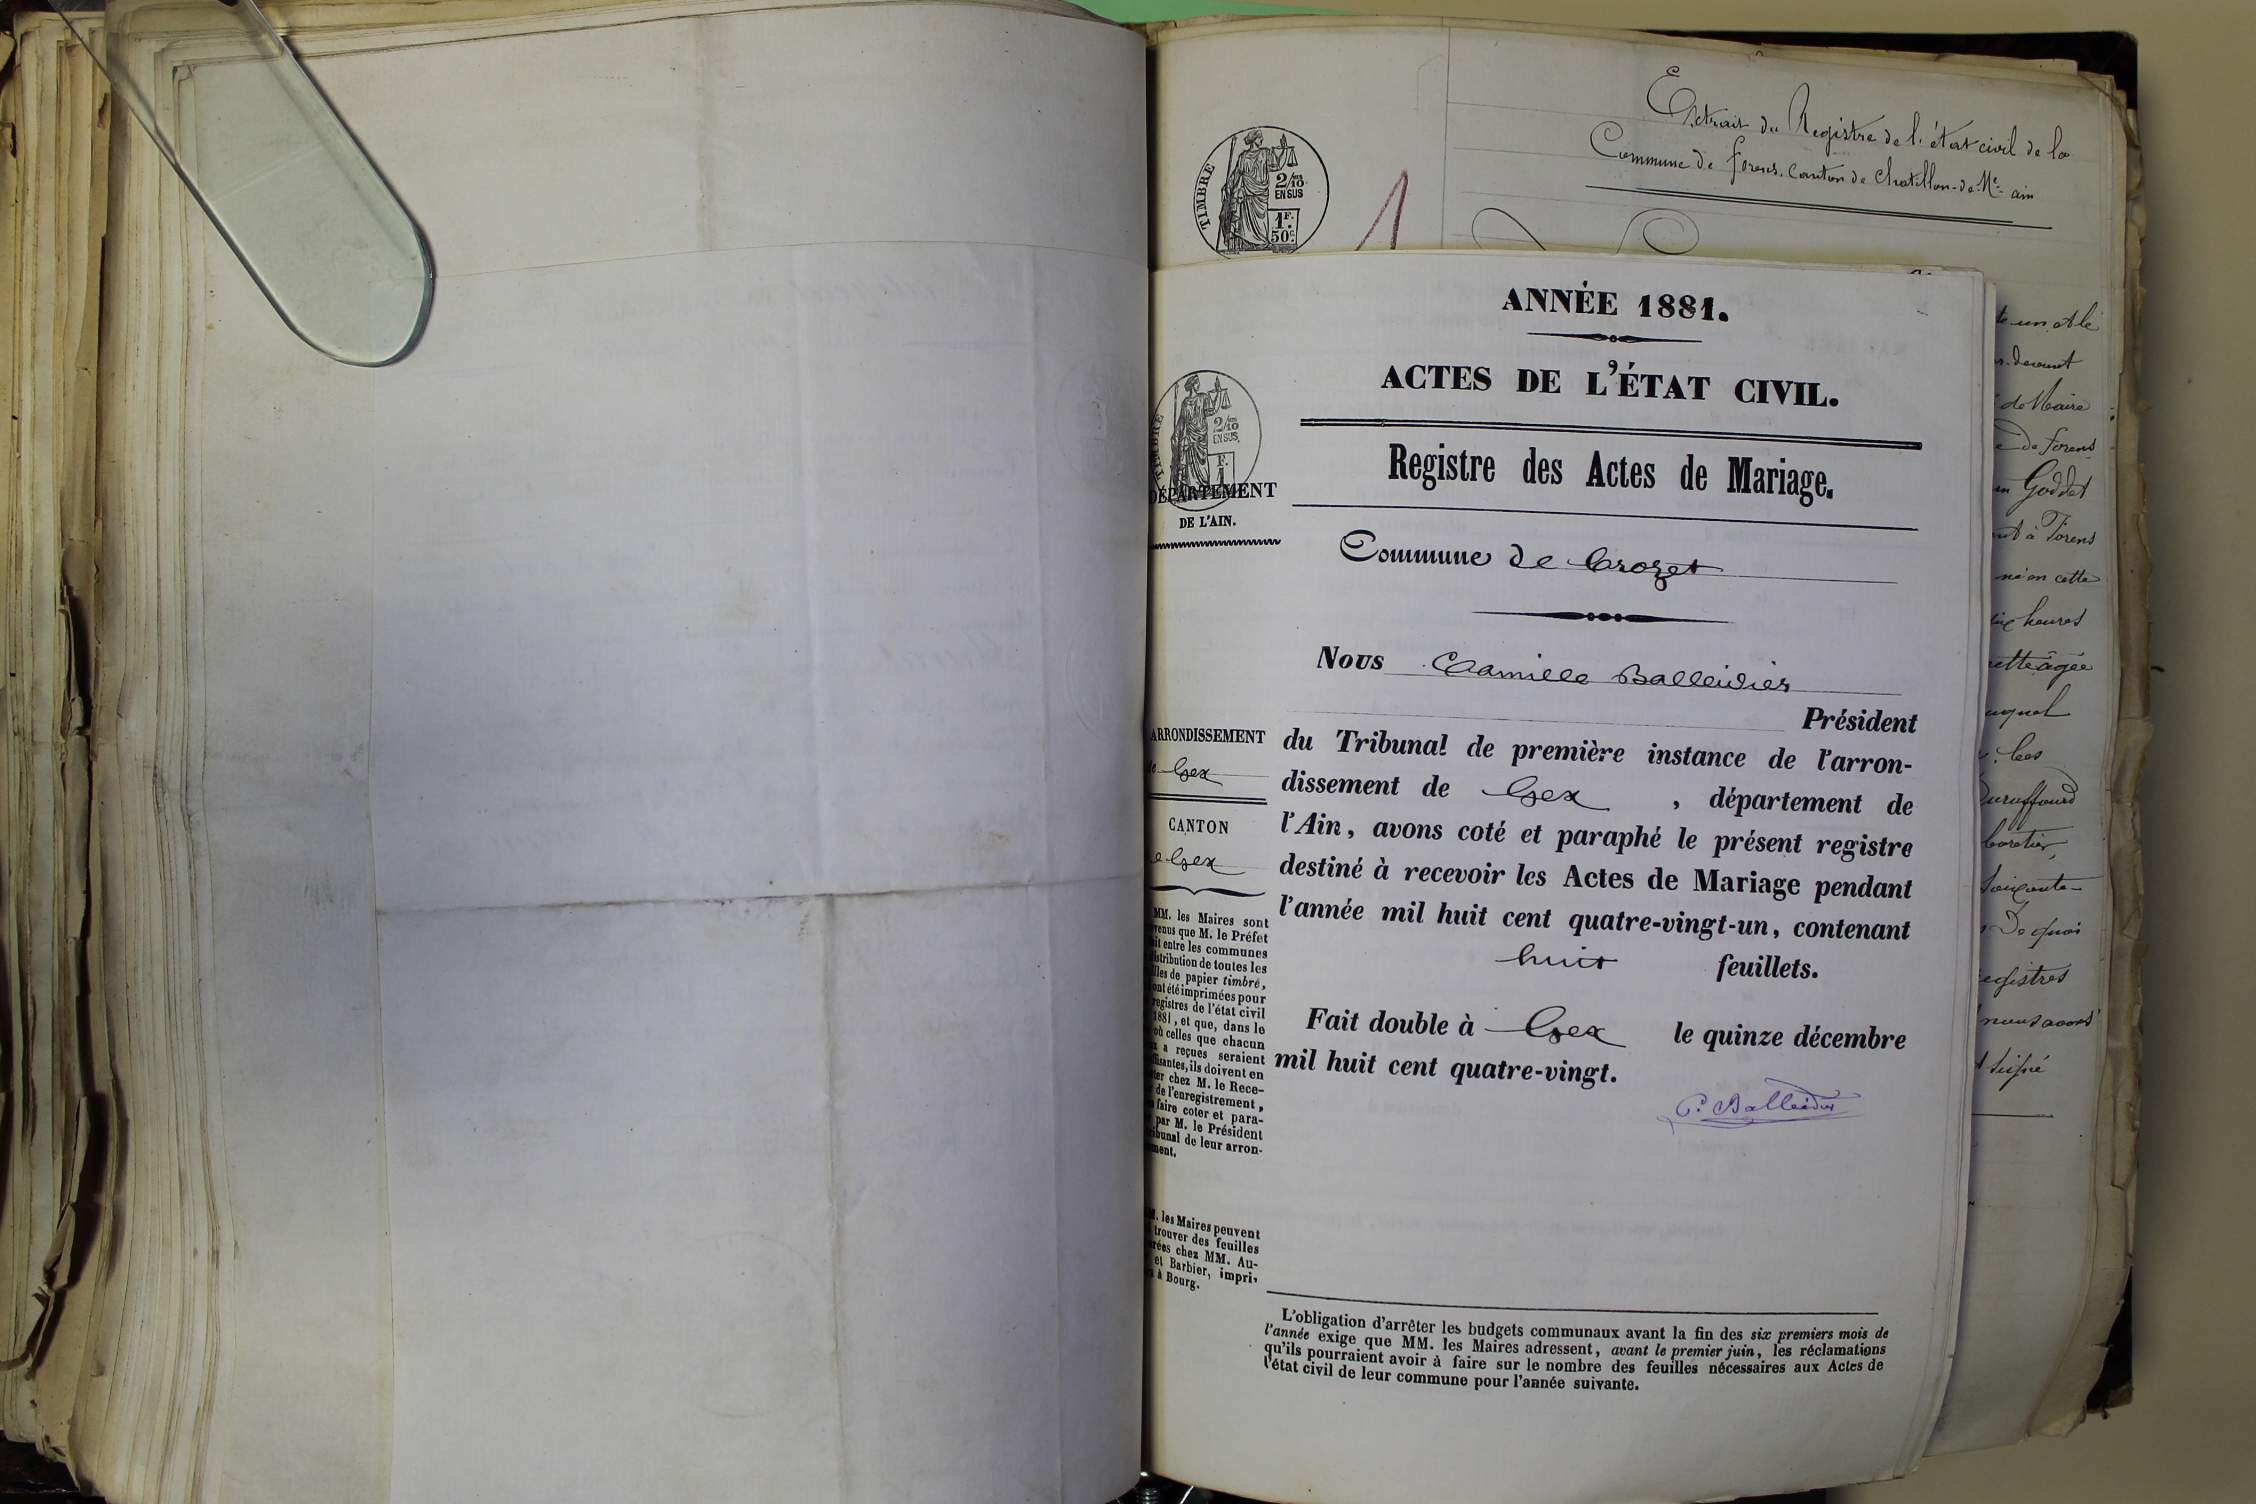 Extrait du Registre de l'état civil de la
Commune de Forens. Canton de Chatillon-de-Mle- ain
TIMBRE
2/10
EN SUS
1F.
50c
te un et le
devant
de Maire
e de Forens
Goddet
nt à Forens
né en cette
heures
ette âgée
les
Soixante-
De quoi
registres
nous avons
signé
ANNÉE 1881.
ACTES DE L'ÉTAT CIVIL.
Registre des Actes de Mariage.
TIMBRE
2/10
EN SUS
1 F.
DÉPARTEMENT
DE L'AIN.
Commune de Crozet
Nous Camille Balleidier
Président
du Tribunal de première instance de l'arron-
dissement de Gex, département de
l'Ain, avons coté et paraphé le présent registre
destiné à recevoir les Actes de Mariage pendant
l'année mil huit cent quatre-vingt-un, contenant
huit feuillets.
Fait double à Gex le quinze décembre
mil huit cent quatre-vingt.
C. Balleidier
ARRONDISSEMENT
de Gex
CANTON
de Gex
MM. les Maires sont
venus que M. le Préfet
ait entre les communes
istribution de toutes les
illes de papier timbré,
ont été imprimées pour
registres de l'état civil
1881, et que, dans le
où celles que chacun
x a reçues seraient
ffisantes, ils doivent en
ter chez M. le Rece-
de l'enregistrement,
faire coter et para-
par M. le Président
ribunal de leur arron-
ment.
M. les Maires peuvent
trouver des feuilles
rées chez MM. Au-
et Barbier, impri-
à Bourg.
L'obligation d'arrêter les budgets communaux avant la fin des six premiers mois de
l'année exige que MM. les Maires adressent, avant le premier juin, les réclamations
qu'ils pourraient avoir à faire sur le nombre des feuilles nécessaires aux Actes de
l'état civil de leur commune pour l'année suivante.